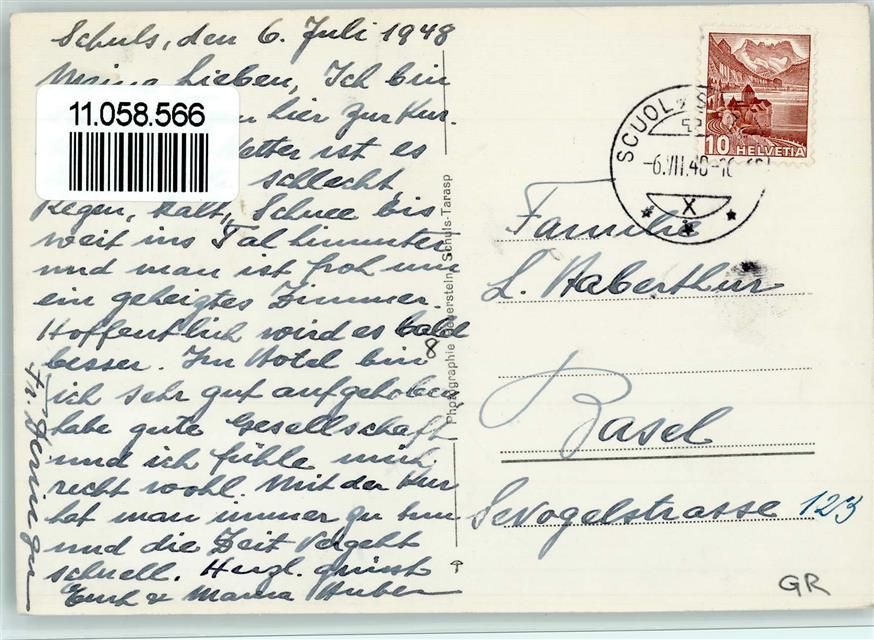 Schuls, den 6. Juli 1948
Meine Lieben, Ich bin
hier zur Kur.
Wetter ist es
schlecht,
Regen, kalt, Schnee bis
weit ins Tal hinunter
und man ist froh um
ein geheiztes Zimmer.
Hoffentlich wird es bald
besser. Im Hotel bin
ich sehr gut aufgehoben,
habe gute Gesellschaft
und ich fühle mich
recht wohl. Mit der Kur
hat man immer zu tun
und die Zeit vergeht
schnell. Herzl. grüsst
Euch Mama Huber
11.058.566
Photographie Feuerstein Schuls-Tarasp
8
SCUOL
-6.VII.48
X
10 HELVETIA
Familie
L. Haberthür
Basel
Sevogelstrasse 123
GR